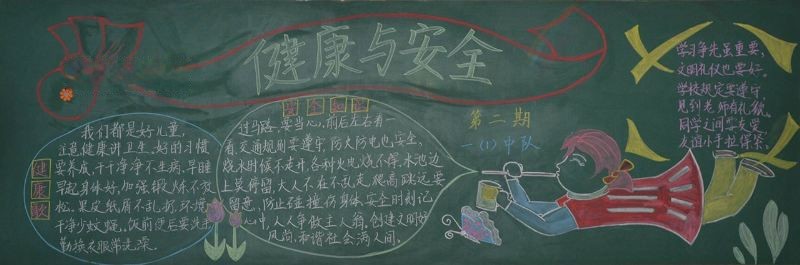 健康与安全
健康歌
我们都是好儿童,
注意健康讲卫生,好的习惯
要养成,干干净净不生病,早睡
早起身体好,加强锻炼不放
松。果皮纸屑不乱扔,环境
干净少蚊蝇。饭前便后要洗手
勤换衣服常洗澡。
安全知识
过马路,要当心,前后左右看一
看,交通规则要遵守,防火防电也安全,
烧水时候不走开,各种火电
上莫停留,大人不在不乱走,爬高跳远要
留意,防止碰撞伤身体,安全时刻记
心中,人人争做主人翁,创建文明好
风尚,和谐社会满人间。
第二期
一(1)中队
学习争先虽重要,
文明礼仪也要好。
学校规定要遵守,
见到老师有礼貌。
同学之间要友爱
友谊小手拉得紧。